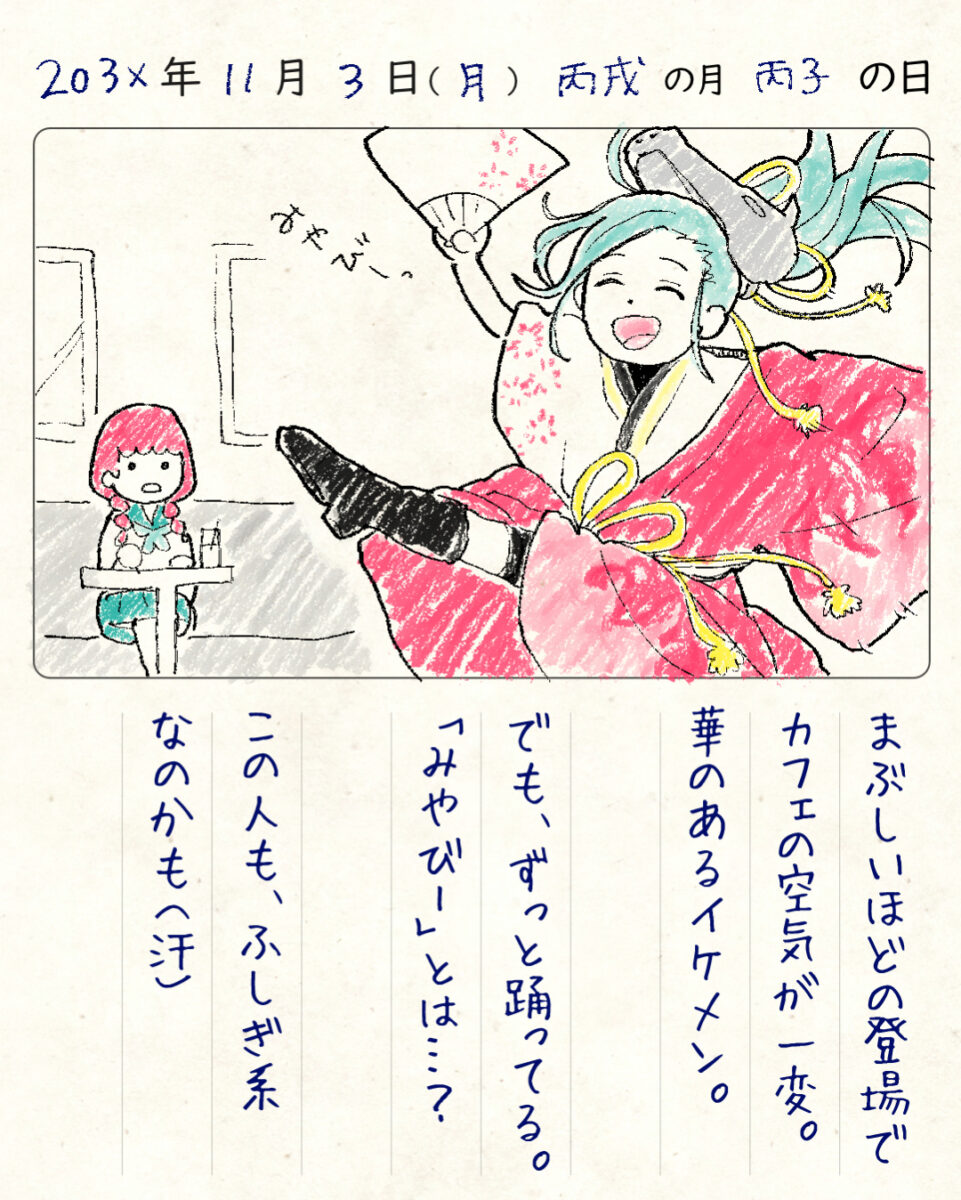 203×年 11月 3日(月) 丙戌の月 丙子の日
みやびーっ
まぶしいほどの登場で
カフェの空気が一変。
華のあるイケメン。
でも、ずっと踊ってる。
「みやびー」とは…?
この人も、ふしぎ系
なのかも(汗)